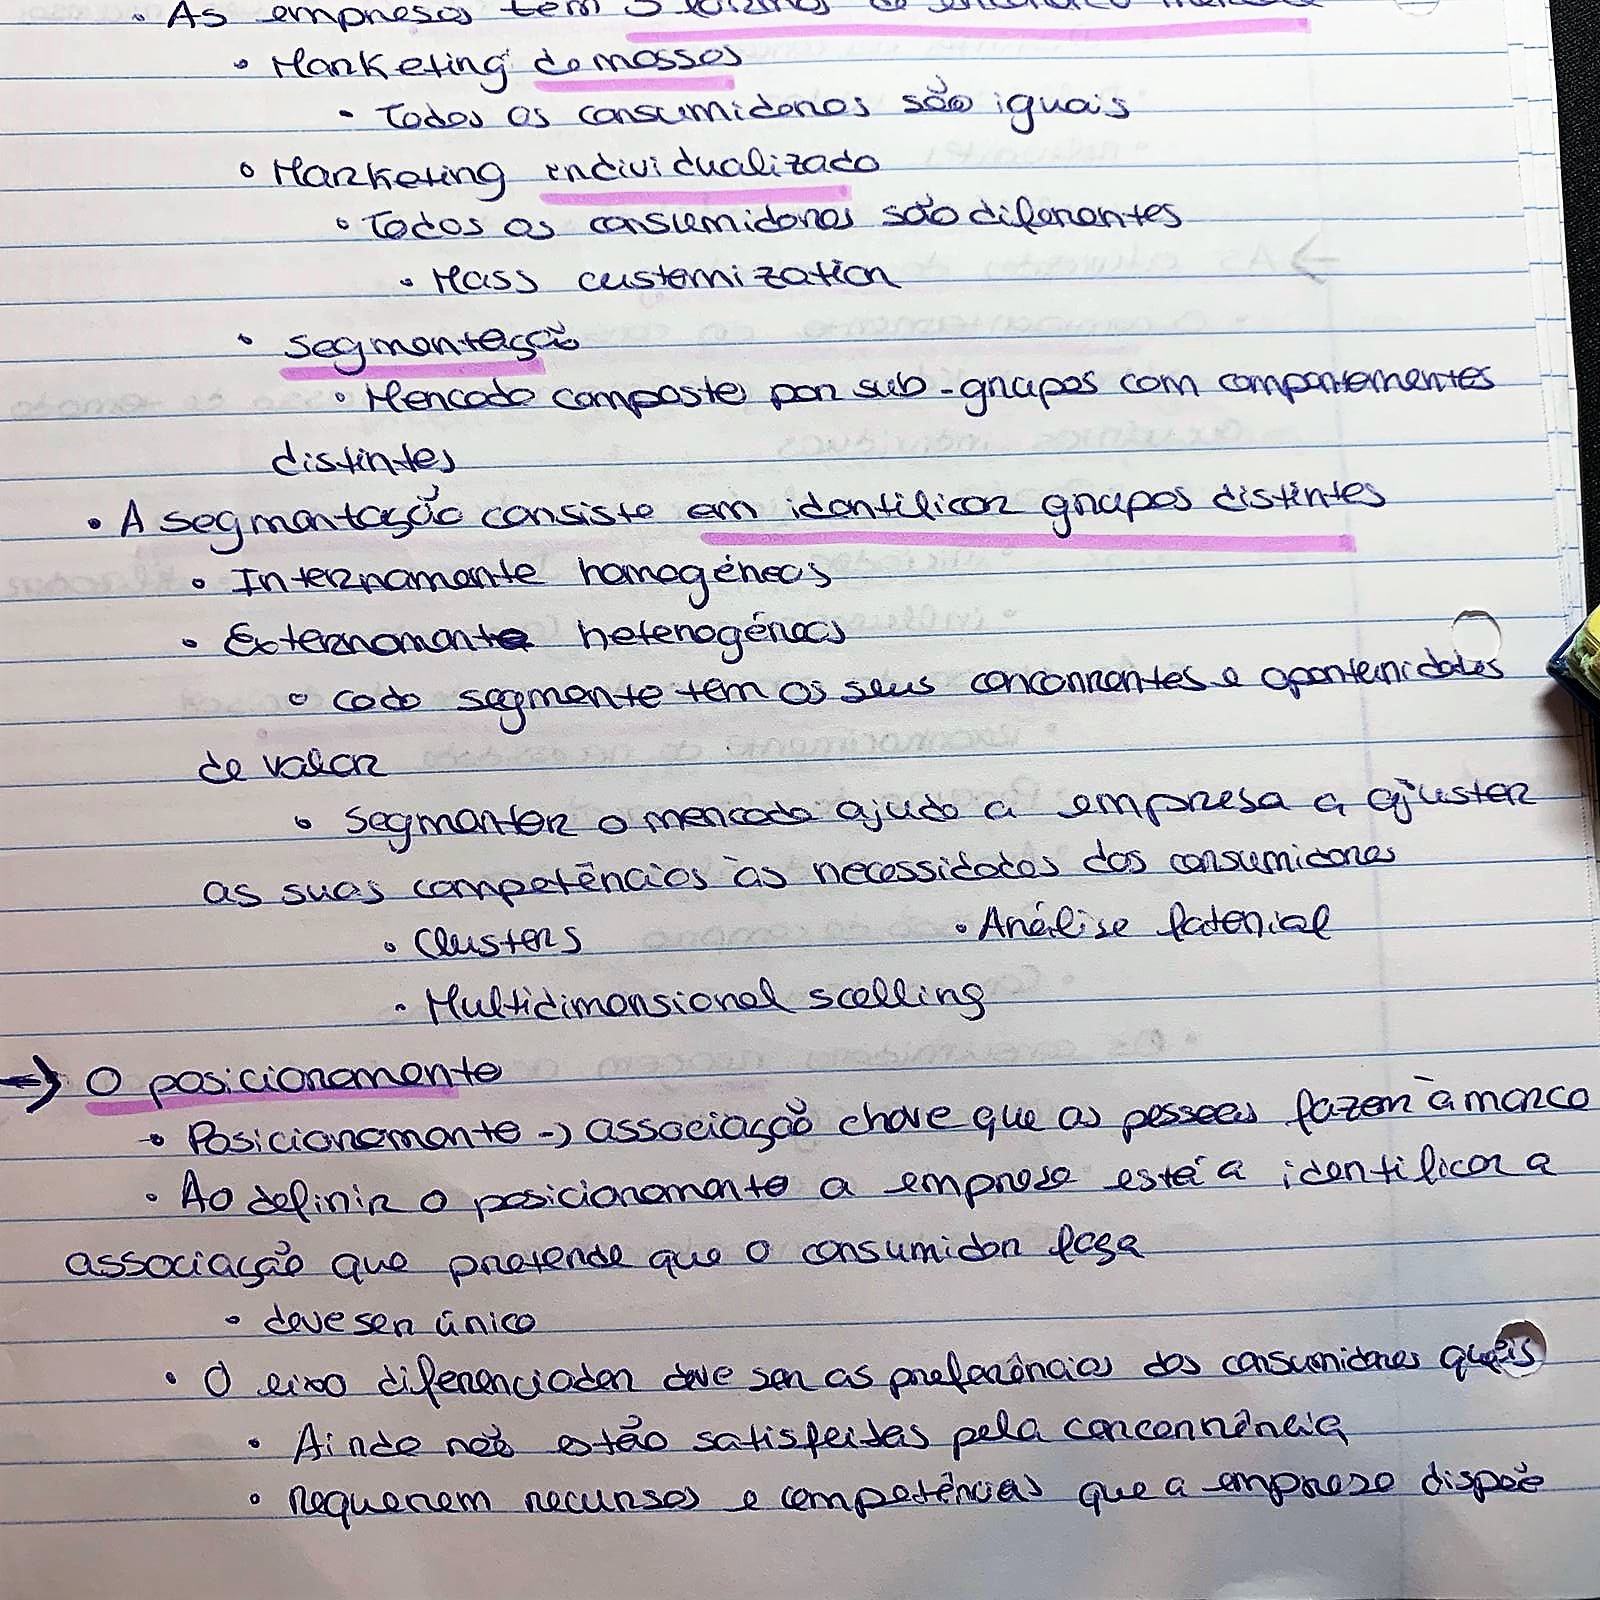 • As empresas têm 3 formas de encarar o mercado
• Marketing de massas
• Todos os consumidores são iguais
• Marketing individualizado
• Todos os consumidores são diferentes
• Mass customization
• Segmentação
• Mercado composto por sub-grupos com comportamentos
distintos
• A segmentação consiste em identificar grupos distintos
• Internamente homogéneos
• Externamente heterogéneos
• cada segmento tem os seus concorrentes e oportunidades
de valor
• Segmentar o mercado ajuda a empresa a ajustar
as suas competências às necessidades dos consumidores
• Clusters • Análise fatorial
• Multidimensional scalling
→ O posicionamento
• Posicionamento → associação chave que as pessoas fazem à marca
• Ao definir o posicionamento a empresa está a identificar a
associação que pretende que o consumidor faça
• deve ser único
• O eixo diferenciador deve ser as preferências dos consumidores quais
• Ainda não estão satisfeitas pela concorrência
• requerem recursos e competências que a empresa dispõe